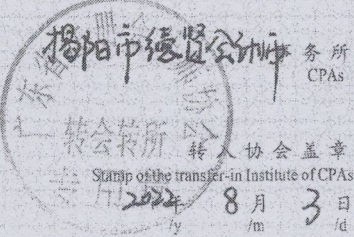 揭阳市德贤会计师事务所
CPAs
广东省注册会计师协会
转会转所
专用章
转入协会盖章
Stamp of the transfer-in Institute of CPAs
2022年 8月 3日
/y /m /d